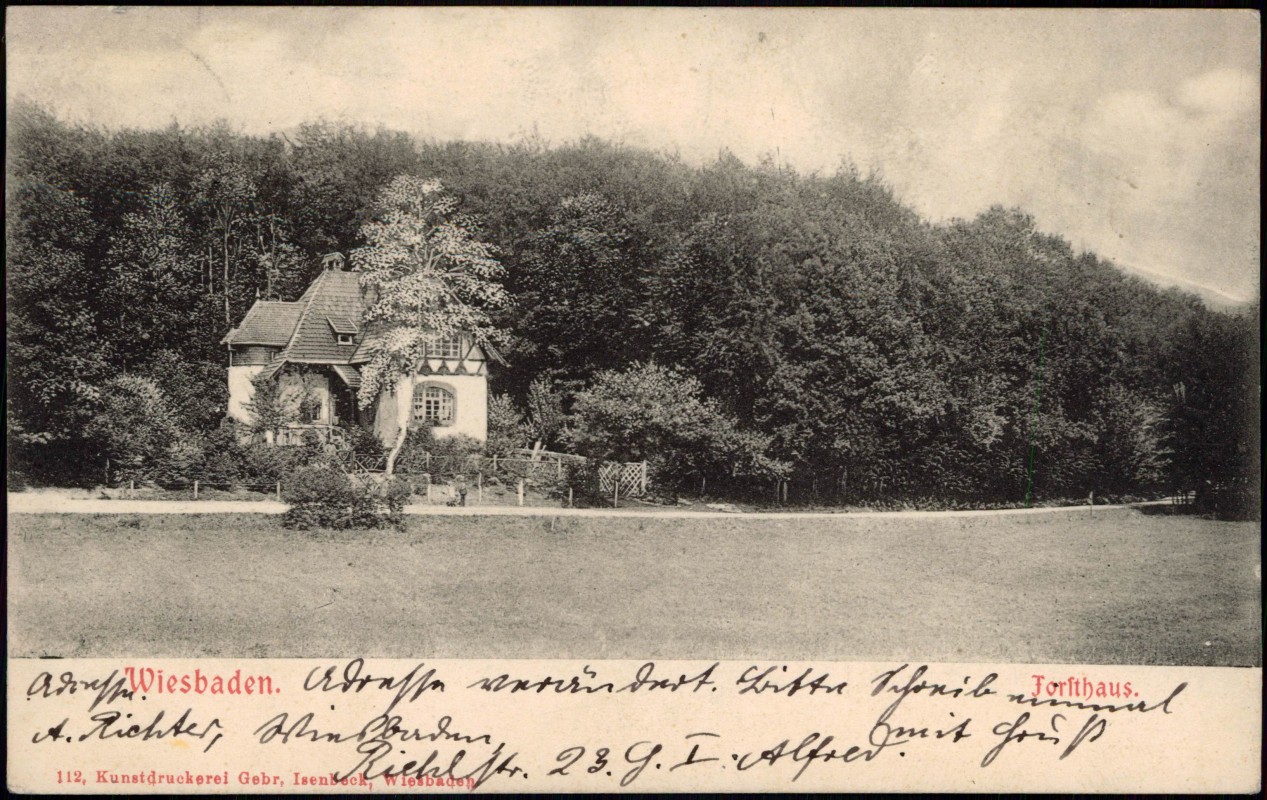 Wiesbaden. Forsthaus.
Adresse: Adresse verändert. Bitte Schreib einmal
A. Richter, Wiesbaden, mit Gruß
Riehlstr. 23. G. I. Alfred.
112, Kunstdruckerei Gebr. Isenbeck, Wiesbaden